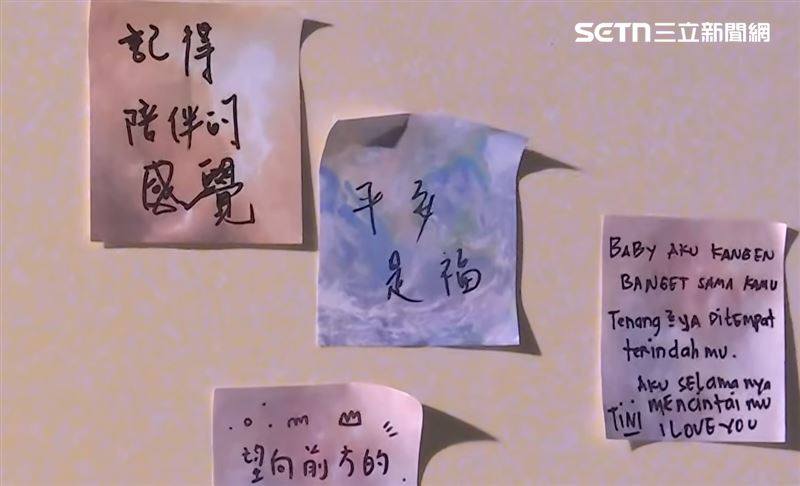 SETN三立新聞網
記得
陪伴的
感覺
平安
是福
BABY AKU KANGEN
BANGET SAMA KAMU
Tenang ² YA DiTEMPAT
terindah mu.
AKU SELAMA nya
mencintai mu
TiNI I LOVE YOU
望向前方的